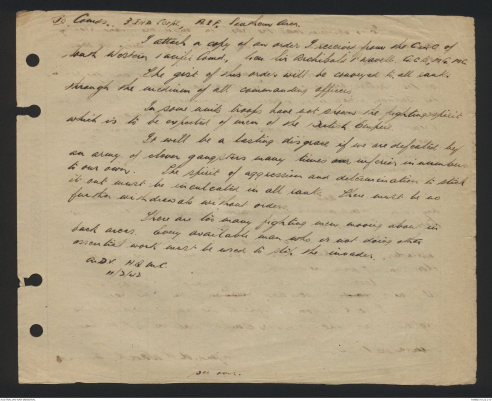 To Comds. 3 Ind Corps, AIF, Southern Area.
I attach a copy of an order I received from the C in C of
South Western Pacific Comd, Gen Sir Archibald Wavell, G.C.B, M.C.
The gist of this order will be conveyed to all ranks
through the medium of all commanding officers
In some units troops have not shown the fighting spirit
which is to be expected of men of the British Empire.
It will be a lasting disgrace if we are defeated by
an army of clever gangsters many times our inferior in numbers
to our own. The spirit of aggression and determination to stick
it out must be inculcated in all ranks. There must be no
further withdrawals without orders.
There are too many fighting men moving about in
back areas. Every available man who is not doing other
essential work must be used to stop the invader.
H.Q. M.C.
11/2/42